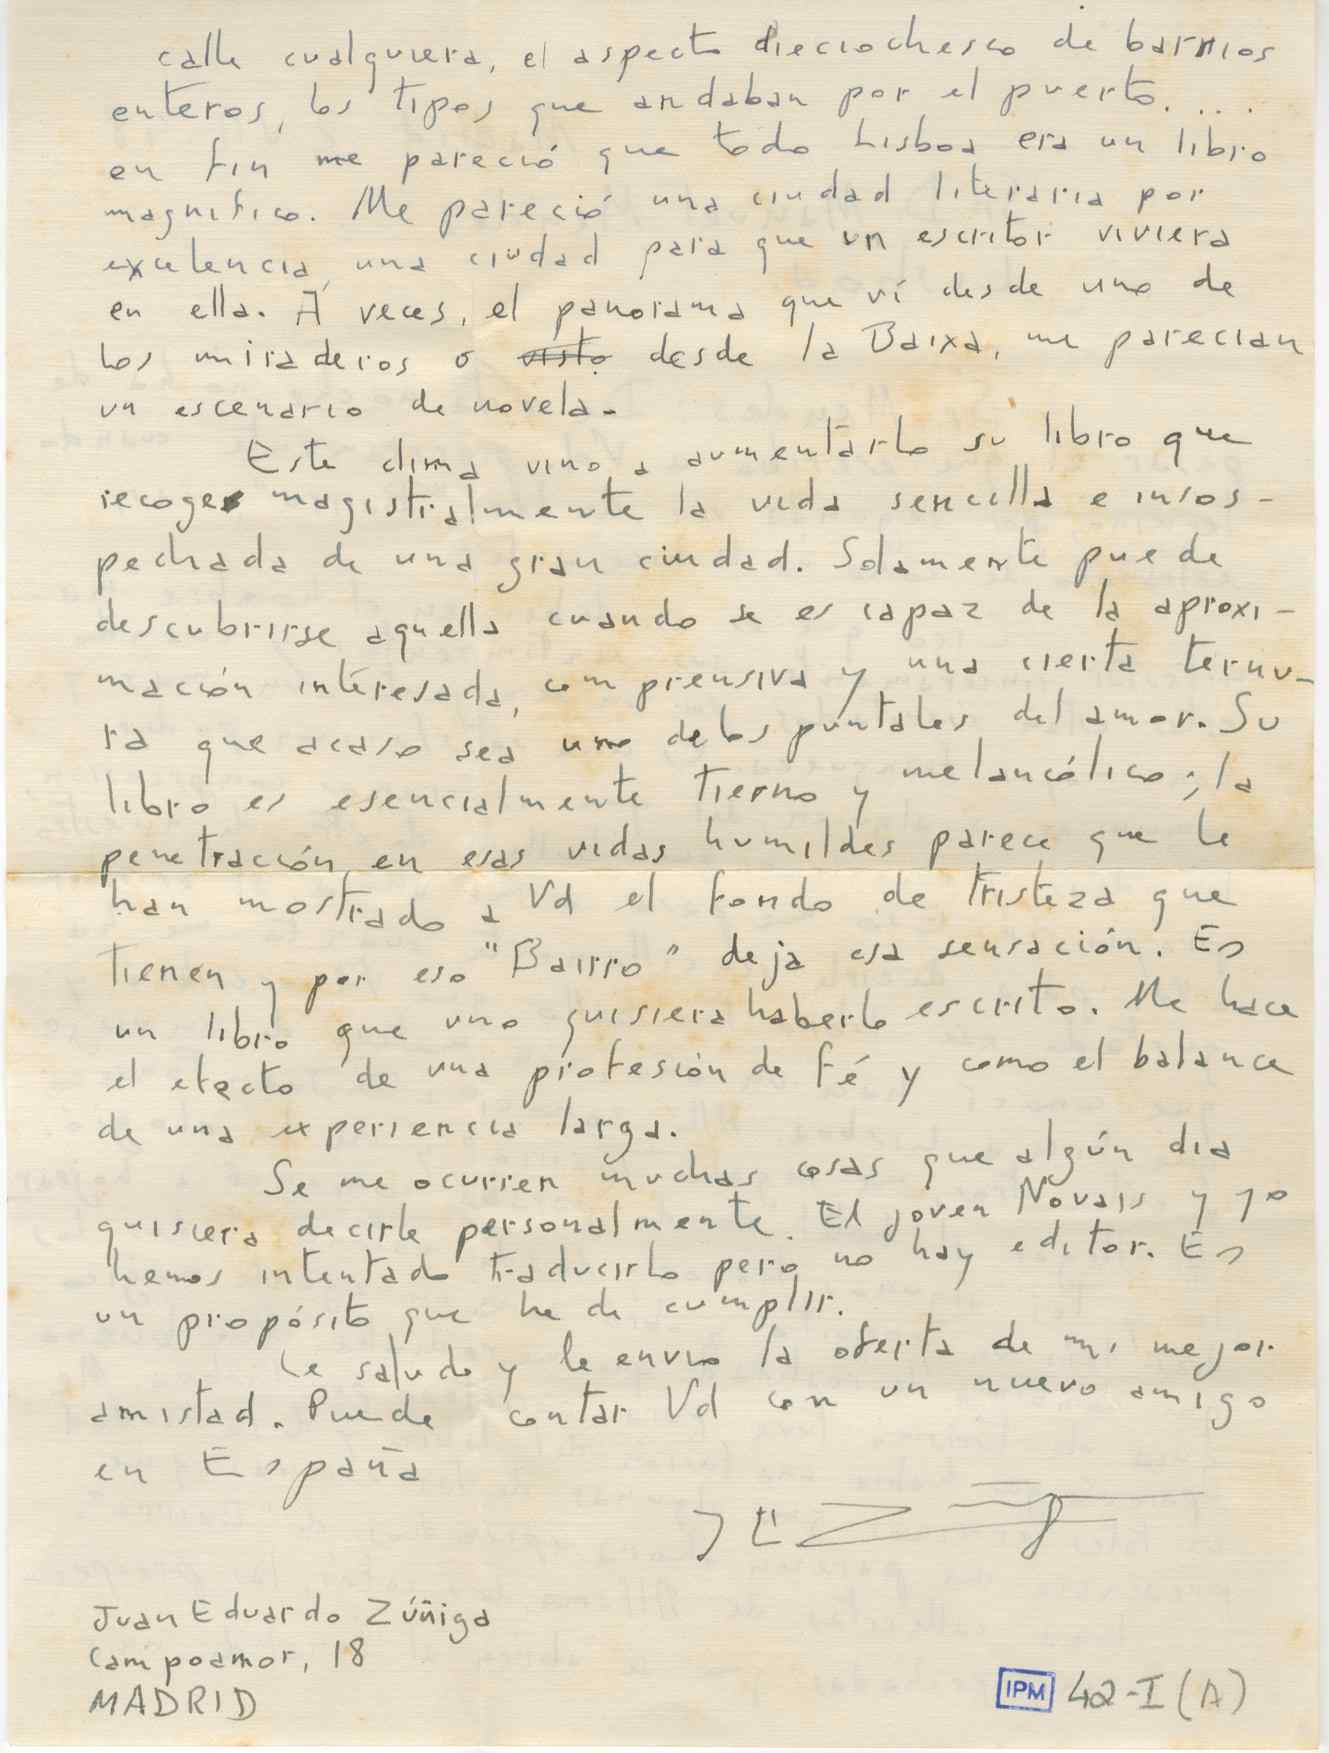 calle cualquiera, el aspecto dieciochesco de barrios
enteros, los tipos que andaban por el puerto....
en fin me pareció que todo Lisboa era un libro
magnifico. Me pareció una ciudad literaria por
excelencia, una ciudad para que un escritor viviera
en ella. A veces, el panorama que ví desde uno de
los miraderos o visto desde la Baixa, me parecian
un escenario de novela.
Este clima vino a aumentarlo su libro que
recoge magistralmente la vida sencilla e insos-
pechada de una gran ciudad. Solamente puede
descubrirse aquella cuando se es capaz de la aproxi-
mación interesada, comprensiva y una cierta ternu-
ra que acaso sea uno de los puntales del amor. Su
libro es esencialmente tierno y melancólico; la
penetración en esas vidas humildes parece que le
han mostrado a Vd el fondo de tristeza que
tienen y por eso "Bairro" deja esa sensación. Es
un libro que uno quisiera haberlo escrito. Me hace
el efecto de una profesión de fé y como el balance
de una experiencia larga.
Se me ocurren muchas cosas que algún dia
quisiera decirle personalmente. El joven Novais y yo
hemos intentado traducirlo pero no hay editor. Es
un propósito que he de cumplir.
Le saludo y le envio la oferta de mi mejor
amistad. Puede contar Vd con un nuevo amigo
en España
J E Zúñiga
Juan Eduardo Zúñiga
Campoamor, 18
MADRID
IPM 42-I (A)